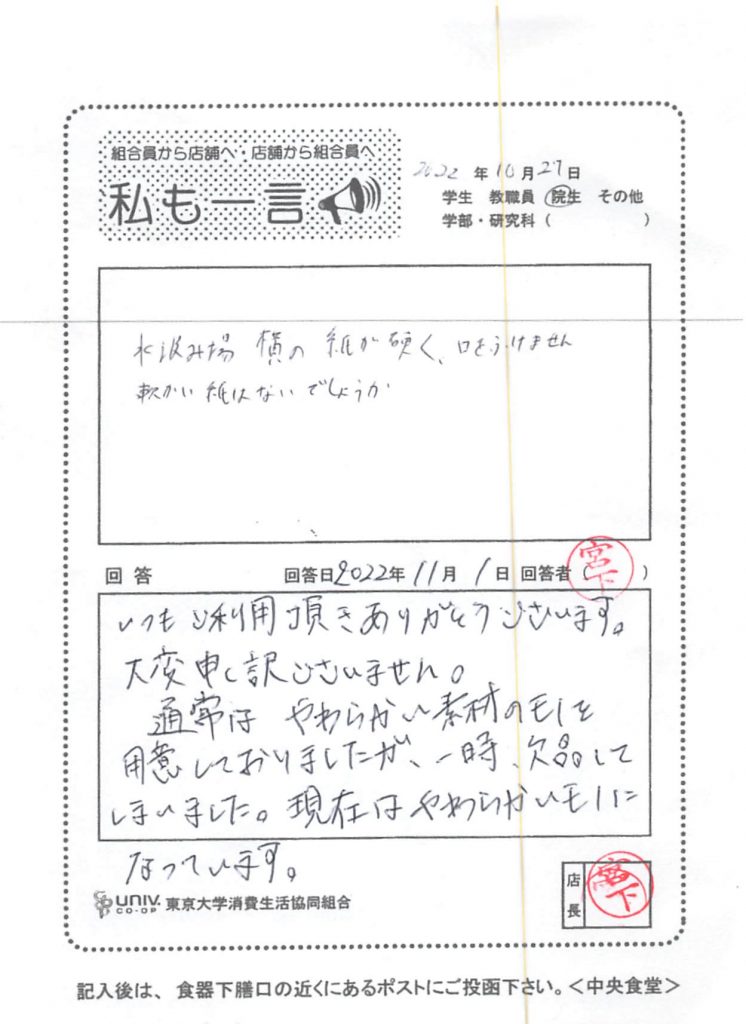 組合員から店舗へ・店舗から組合員へ
私も一言
2022 年 10 月 27 日
学生 教職員 院生 その他
学部・研究科 ( )
水汲み場 横の 紙が硬く、口をふけません
軟かい 紙はないでしょうか
回答 回答日 2022年 11月 1日 回答者 (宮下)
いつもご利用頂きありがとうございます。
大変申し訳ございません。
通常は やわらかい素材のモノを
用意しておりましたが、一時、欠品して
しまいました。現在はやわらかいモノに
なっています。
UNIV. CO-OP 東京大学消費生活協同組合
店長 宮下
記入後は、食器下膳口の近くにあるポストにご投函下さい。＜中央食堂＞